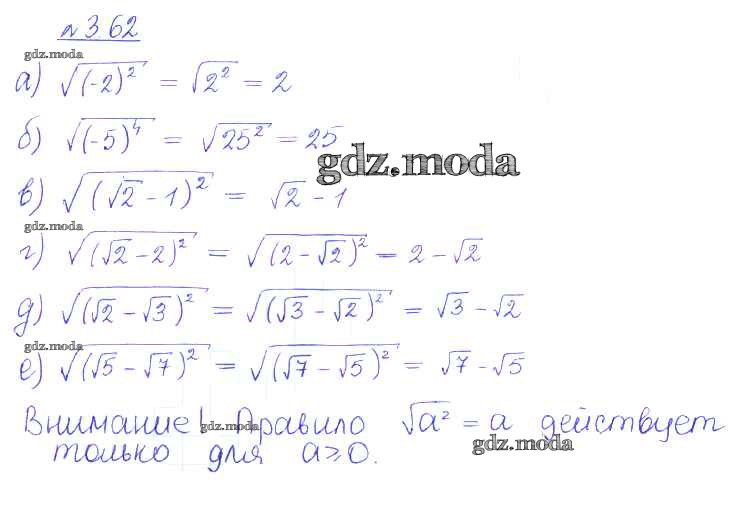 № 3.62
gdz.moda
а) √(-2)² = √2² = 2
б) √(-5)⁴ = √25² = 25
gdz.moda
в) √(√2 - 1)² = √2 - 1
gdz.moda
г) √(√2 - 2)² = √(2 - √2)² = 2 - √2
д) √(√2 - √3)² = √(√3 - √2)² = √3 - √2
gdz.moda
е) √(√5 - √7)² = √(√7 - √5)² = √7 - √5
Внимание! Правило √a² = a действует
gdz.moda
только для a ≥ 0.
gdz.moda